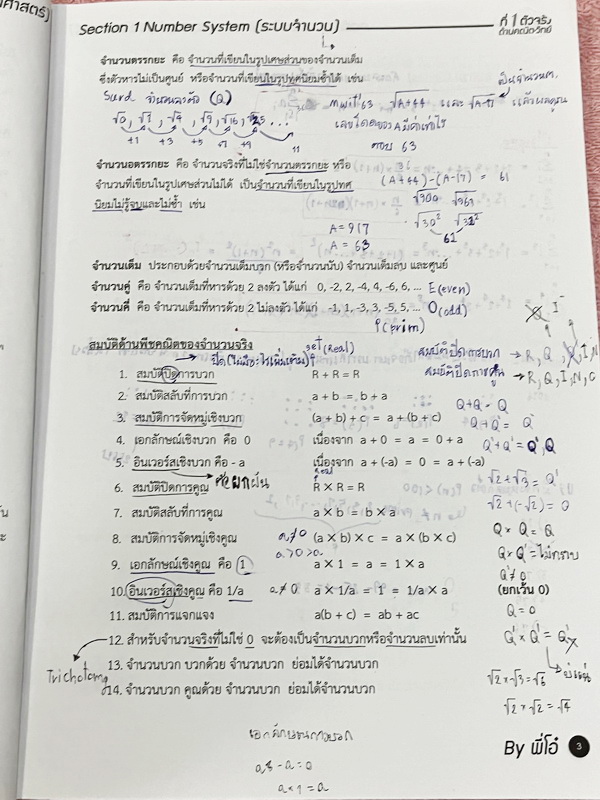 Section 1 Number System (ระบบจำนวน)
ที่ 1 ตัวจริง
ด้านคณิตวิทย์
จำนวนตรรกยะ คือ จำนวนที่เขียนในรูปเศษส่วนของจำนวนเต็ม
ซึ่งตัวหารไม่เป็นศูนย์ หรือจำนวนที่เขียนในรูปทศนิยมซ้ำได้ เช่น
Surd
(Q)
√0, √1, √4, √9, √16, √25 ...
+1 +3 +5 +7 +9 11
mwit'63 √A+44 และ √A-17
ตอบ 63
จำนวนอตรรกยะ คือ จำนวนจริงที่ไม่ใช่จำนวนตรรกยะ หรือ
จำนวนที่เขียนในรูปเศษส่วนไม่ได้ เป็นจำนวนที่เขียนในรูปทศ
นิยมไม่รู้จบและไม่ซ้ำ เช่น
(A+44)-(A-17) = 61
√900 √961
√30² √31²
A = 917
A = 63
จำนวนเต็ม ประกอบด้วยจำนวนเต็มบวก (หรือจำนวนนับ) จำนวนเต็มลบ และศูนย์
จำนวนคู่ คือ จำนวนเต็มที่หารด้วย 2 ลงตัว ได้แก่ 0, -2, 2, -4, 4, -6, 6, ... E(even)
จำนวนคี่ คือ จำนวนเต็มที่หารด้วย 2 ไม่ลงตัว ได้แก่ -1, 1, -3, 3, -5, 5, ... O(odd)
P(prim)
สมบัติด้านพีชคณิตของจำนวนจริง
set(Real)
สมบัติปิดการบวก → R, Q, I, N
สมบัติปิดการคูณ → R, Q, I, N, C
1. สมบัติปิดการบวก R + R = R
2. สมบัติสลับที่การบวก a + b = b + a
3. สมบัติการจัดหมู่เชิงบวก (a + b) + c = a + (b + c)
4. เอกลักษณ์เชิงบวก คือ 0 เนื่องจาก a + 0 = a = 0 + a
5. อินเวอร์สเชิงบวก คือ - a เนื่องจาก a + (-a) = 0 = a + (-a)
6. สมบัติปิดการคูณ R × R = R
7. สมบัติสลับที่การคูณ a × b = b × a
8. สมบัติการจัดหมู่เชิงคูณ a≠0 (a × b) × c = a × (b × c)
9. เอกลักษณ์เชิงคูณ คือ 1 a × 1 = a = 1 × a
10. อินเวอร์สเชิงคูณ คือ 1/a a≠0 a × 1/a = 1 = 1/a × a (ยกเว้น 0)
11. สมบัติการแจกแจง a(b + c) = ab + ac
12. สำหรับจำนวนจริงที่ไม่ใช่ 0 จะต้องเป็นจำนวนบวกหรือจำนวนลบเท่านั้น
13. จำนวนบวก บวกด้วย จำนวนบวก ย่อมได้จำนวนบวก
14. จำนวนบวก คูณด้วย จำนวนบวก ย่อมได้จำนวนบวก
Trichotomy
Q+Q = Q
Q+Q' = Q'
Q'+Q' = Q', Q
√2+√3 = Q'
√2+(-√2) = 0
Q × Q = Q
Q × Q' = ไม่ทราบ
Q' ≠ 0
Q = 0
Q' × Q' = Q'
√2 × √3 = √6
√2 × √2 = √4
a × 1 = a
By พี่โอ๋ 3